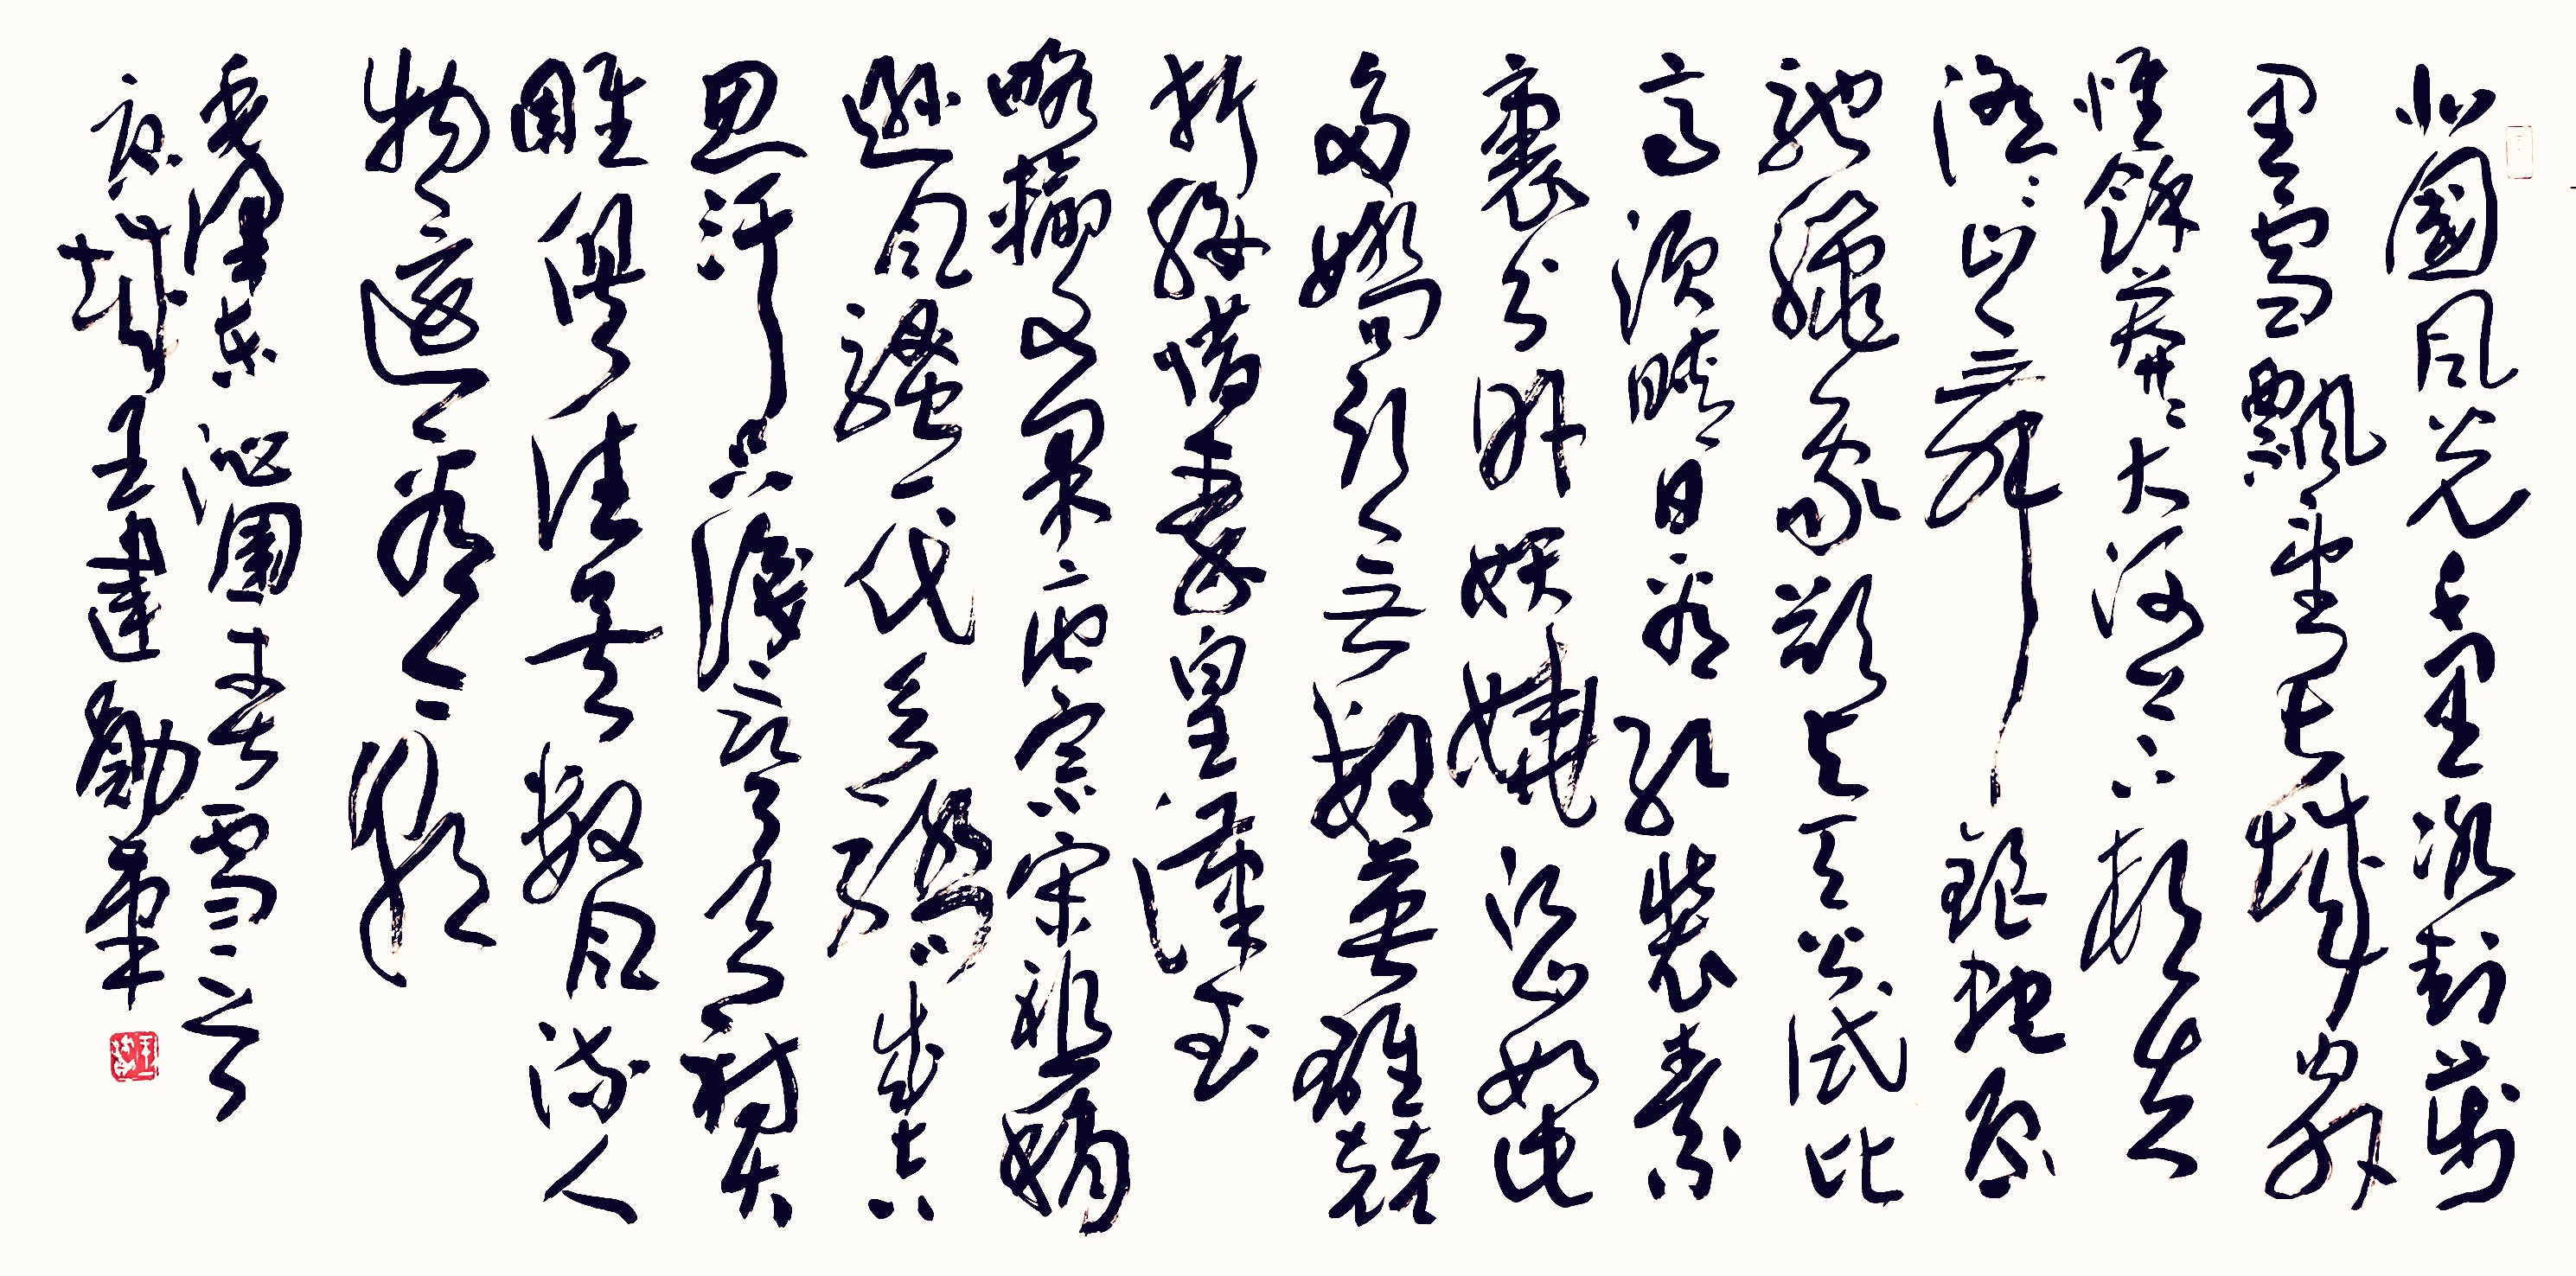 北國風光千里冰封萬
里雪飄望長城內外
惟餘莽々大河上下頓失
滔々山舞銀蛇原
馳蠟象欲與天公試比
高須晴日看紅裝素
裹分外妖嬈江山如此
多嬌引無數英雄競
折腰惜秦皇漢武
略輸文采唐宗宋祖稍
遜風騷一代天驕成吉
思汗只識彎弓射大
雕俱往矣數風流人
物還看今朝
毛澤東沁園春雪
城王建勛